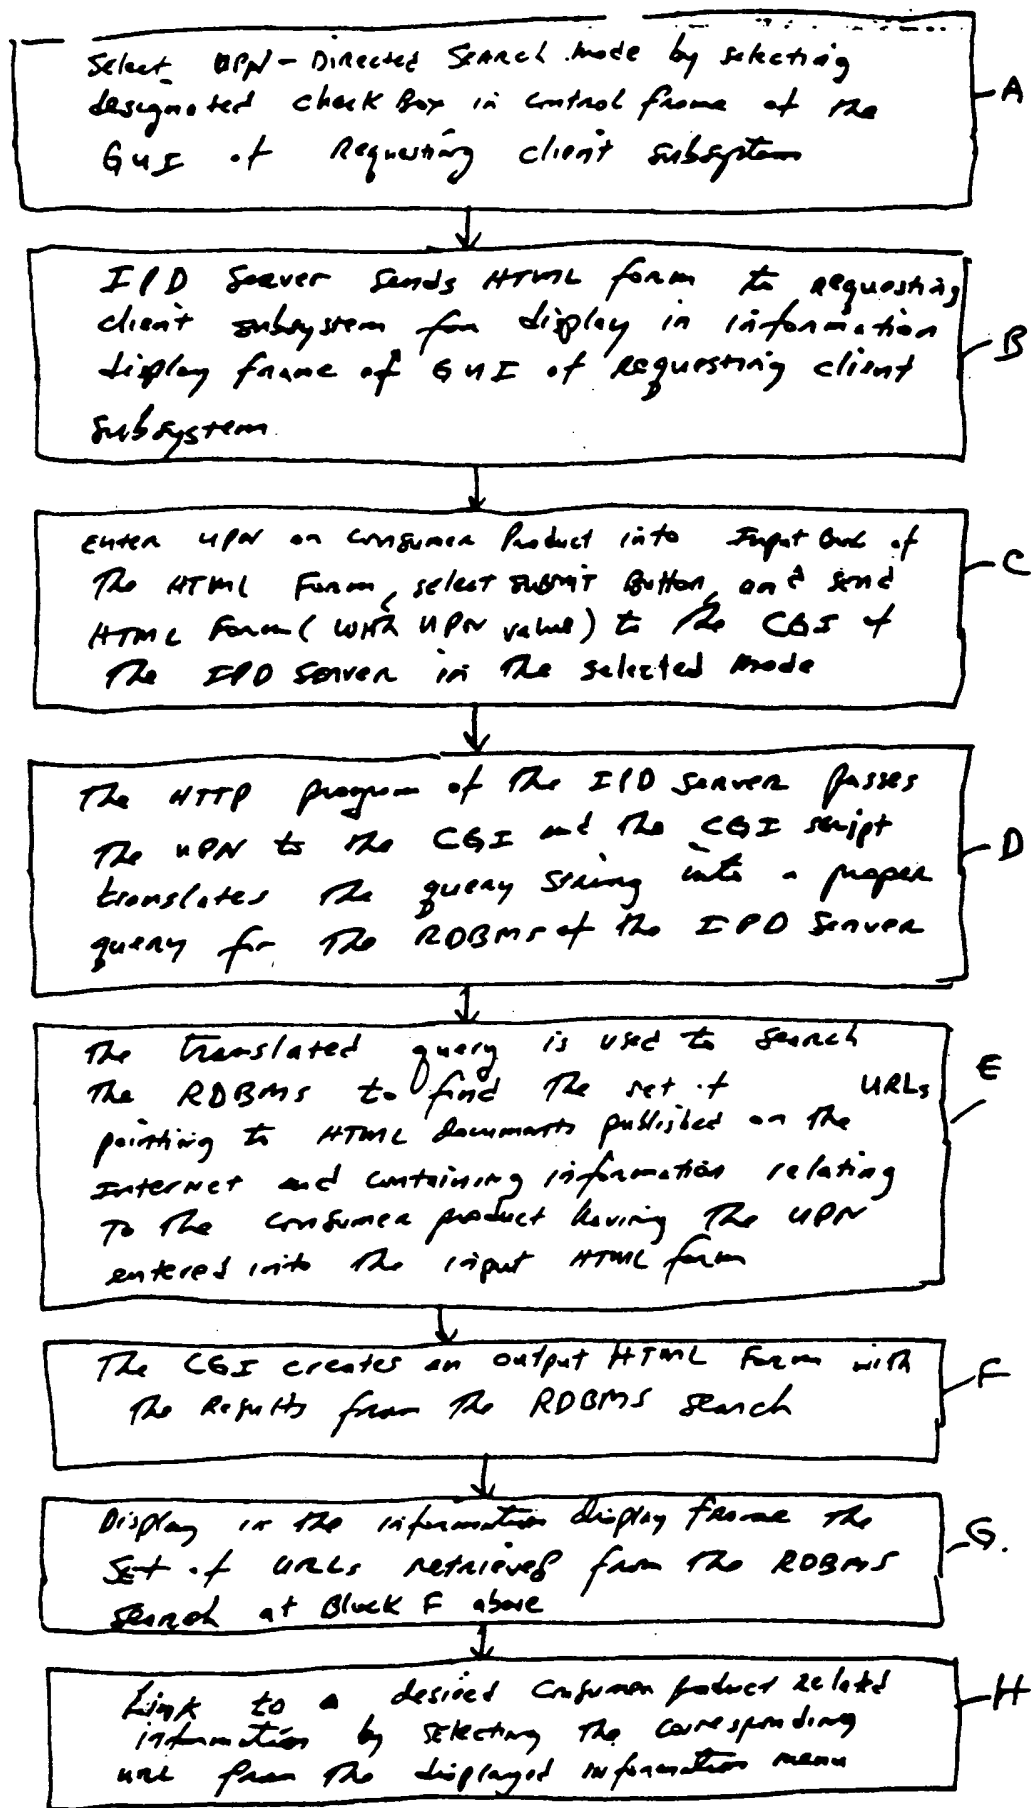 Select UPN-Directed Search mode by selecting
designated check Box in control frame of the
GUI of Requesting client subsystem
A
IPD Server sends HTML form to requesting
client subsystem for display in information
display frame of GUI of requesting client
subsystem
B
Enter UPN on consumer Product into Input Box of
The HTML Form, select submit Button, and send
HTML Form (with UPN value) to The CGI of
The IPD Server in the selected mode
C
The HTTP program of the IPD Server passes
The UPN to the CGI and the CGI script
translates the query string into a proper
query for The RDBMS of the IPD Server
D
The translated query is used to search
The RDBMS to find The set of URLs
pointing to HTML documents published on the
Internet and containing information relating
To The consumer product having The UPN
entered into the input HTML form
E
The CGI creates an output HTML Form with
The Results from The RDBMS search
F
Display in the information display frame the
Set of URLs retrieved from The RDBMS
search at Block F above
G.
Link to a desired consumer product related
information by selecting The corresponding
URL from The displayed information menu
H